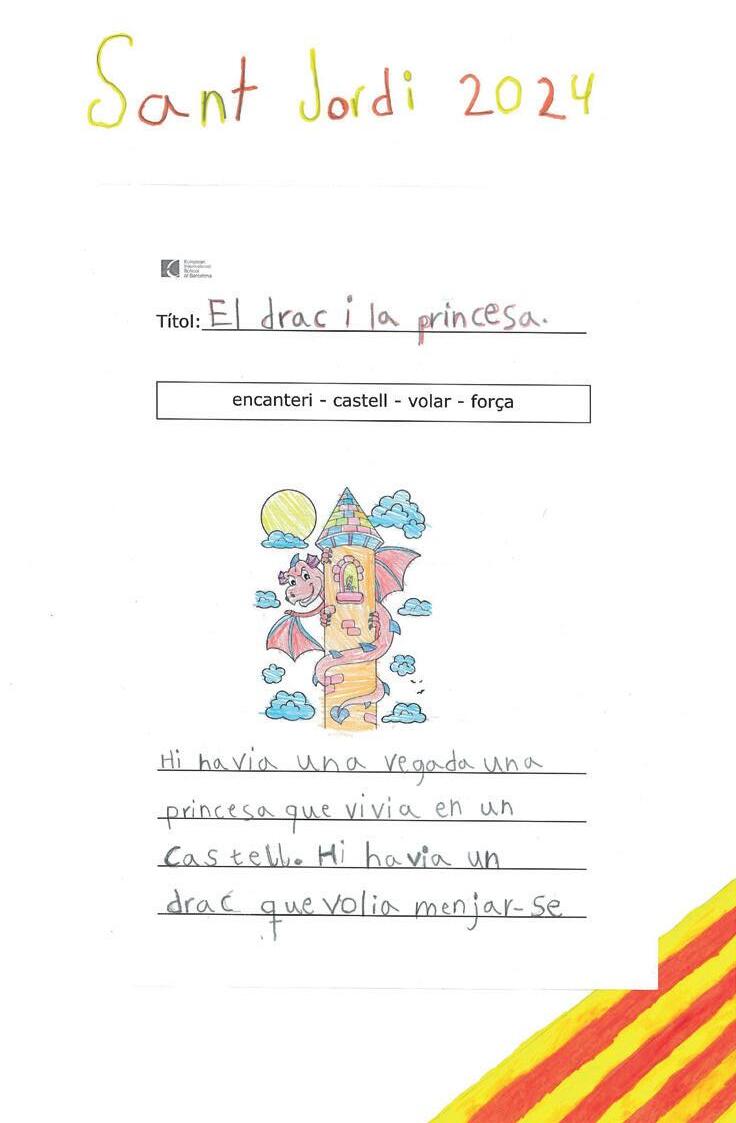 Sant Jordi 2024
European
International
School
of Barcelona
Títol: El drac i la princesa.
encanteri - castell - volar - força
Hi havia una vegada una
princesa que vivia en un
Castell. Hi havia un
drac que volia menjar-se